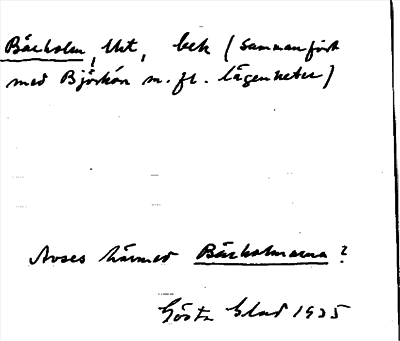 Bärholm, lht, bek (sammanförd
med Björkön m. fl. lägenheter)
Avses härmed Bärholmarna?
Gösta Blad 1935